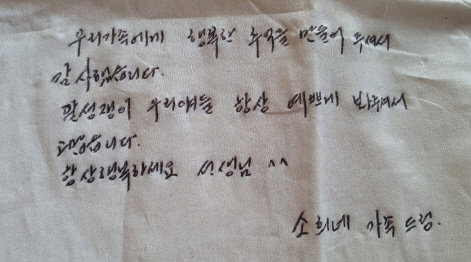 우리가족에게 행복한 추억을 만들어 주셔서
감사합니다.
말썽쟁이 우리얘들 항상 예쁘게 봐줘서
고맙습니다.
항상행복하세요 선생님 ^^
소희네 가족 드림.